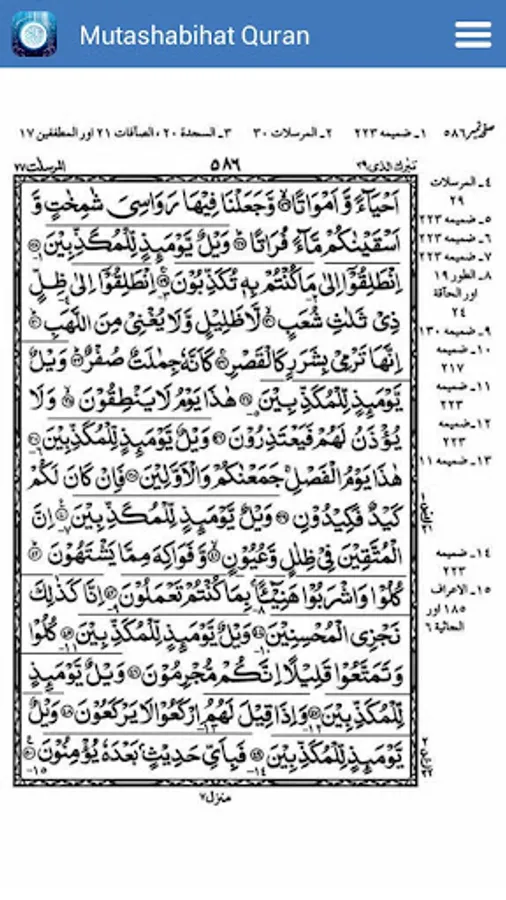 Mutashabihat Quran
صفحہ نمبر ۵۸۶ ۱۔ ضمیمہ ۲۲۳ ۲۔ المرسلات ۳۰ ۳۔ السجدۃ ۲۰، الصآفات ۲۱ اور المطففین ۱۷
تبٰرک الذی ۲۹ ۵۸۶ المرسلٰت ۷۷
اَحْيَآءً وَّ اَمْوَاتًا ﴿۲۶﴾ وَّجَعَلْنَا فِيْهَا رَوَاسِىَ شٰمِخٰتٍ وَّ
اَسْقَيْنٰكُمْ مَّآءً فُرَاتًا ﴿۲۷﴾ وَيْلٌ يَّوْمَىِٕذٍ لِّلْمُكَذِّبِيْنَ ﴿۲۸﴾
اِنْطَلِقُوْۤا اِلٰى مَا كُنْتُمْ بِهٖ تُكَذِّبُوْنَ ﴿۲۹﴾ اِنْطَلِقُوْۤا اِلٰى ظِلٍّ
ذِىْ ثَلٰثِ شُعَبٍ ﴿۳۰﴾ لَّا ظَلِيْلٍ وَّلَا يُغْنِىْ مِنَ اللَّهَبِ ﴿۳۱﴾
اِنَّهَا تَرْمِىْ بِشَرَرٍ كَالْقَصْرِ ﴿۳۲﴾ كَاَنَّهٗ جِمٰلَتٌ صُفْرٌ ﴿۳۳﴾ وَيْلٌ
يَّوْمَىِٕذٍ لِّلْمُكَذِّبِيْنَ ﴿۳۴﴾ هٰذَا يَوْمُ لَا يَنْطِقُوْنَ ﴿۳۵﴾ وَلَا
يُؤْذَنُ لَهُمْ فَيَعْتَذِرُوْنَ ﴿۳۶﴾ وَيْلٌ يَّوْمَىِٕذٍ لِّلْمُكَذِّبِيْنَ ﴿۳۷﴾
هٰذَا يَوْمُ الْفَصْلِ ۚ جَمَعْنٰكُمْ وَالْاَوَّلِيْنَ ﴿۳۸﴾ فَاِنْ كَانَ لَكُمْ
كَيْدٌ فَكِيْدُوْنِ ﴿۳۹﴾ وَيْلٌ يَّوْمَىِٕذٍ لِّلْمُكَذِّبِيْنَ ﴿۴۰﴾ اِنَّ
الْمُتَّقِيْنَ فِىْ ظِلٰلٍ وَّعُيُوْنٍ ﴿۴۱﴾ وَّفَوَاكِهَ مِمَّا يَشْتَهُوْنَ ﴿۴۲﴾
كُلُوْا وَاشْرَبُوْا هَنِيْٓـًٔۢا بِمَا كُنْتُمْ تَعْمَلُوْنَ ﴿۴۳﴾ اِنَّا كَذٰلِكَ
نَجْزِى الْمُحْسِنِيْنَ ﴿۴۴﴾ وَيْلٌ يَّوْمَىِٕذٍ لِّلْمُكَذِّبِيْنَ ﴿۴۵﴾ كُلُوْا
وَتَمَتَّعُوْا قَلِيْلًا اِنَّكُمْ مُّجْرِمُوْنَ ﴿۴۶﴾ وَيْلٌ يَّوْمَىِٕذٍ
لِّلْمُكَذِّبِيْنَ ﴿۴۷﴾ وَاِذَا قِيْلَ لَهُمُ ارْكَعُوْا لَا يَرْكَعُوْنَ ﴿۴۸﴾ وَيْلٌ
يَّوْمَىِٕذٍ لِّلْمُكَذِّبِيْنَ ﴿۴۹﴾ فَبِاَىِّ حَدِيْثٍۭ بَعْدَهٗ يُؤْمِنُوْنَ ﴿۵۰﴾
۴۔ المرسلات
۲۹
۵۔ ضمیمہ ۲۲۳
۶۔ ضمیمہ ۲۲۳
۷۔ ضمیمہ ۲۲۳
۸۔ الطور ۱۹
اور الحآقۃ
۲۴
۹۔ ضمیمہ ۱۳۰
۱۰۔ ضمیمہ
۲۱۷
۱۱۔ ضمیمہ
۲۲۳
۱۲۔ ضمیمہ
۲۲۳
۱۳۔ ضمیمہ ۱۱
۱۴۔ ضمیمہ
۲۲۳
۱۵۔ الاعراف
۱۸۵ اور
الجاثیۃ ۶
منزل ۷